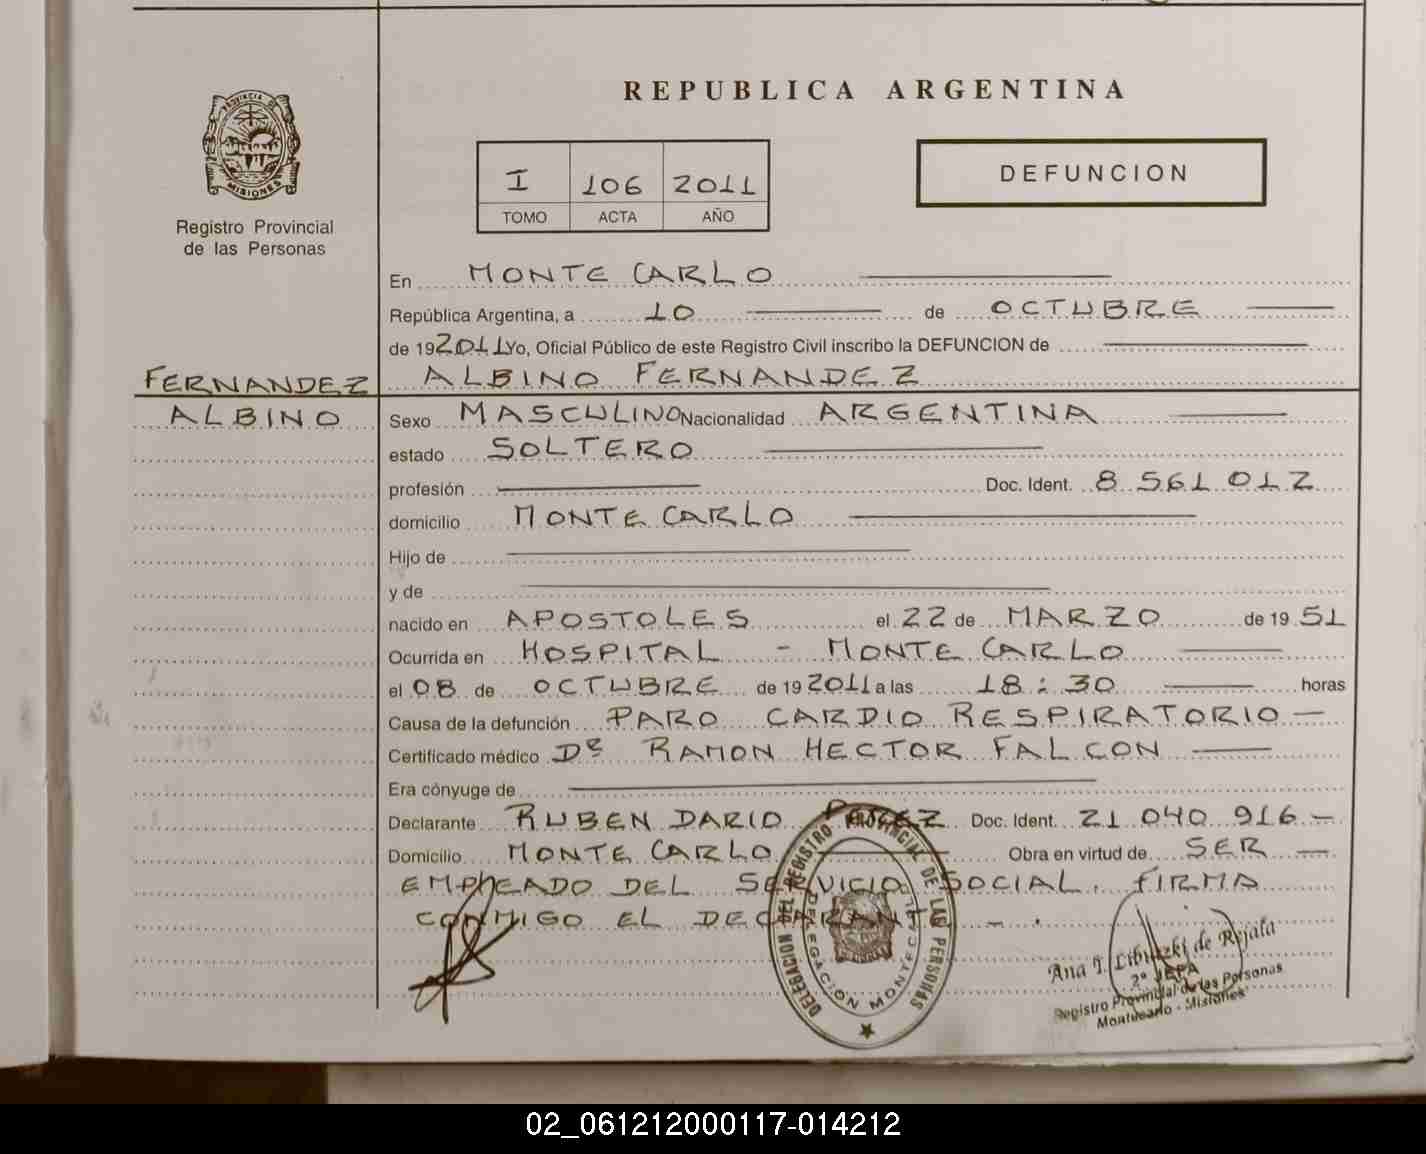 REPUBLICA ARGENTINA
PROVINCIA DE
MISIONES
Registro Provincial
de las Personas
I 106 2011
TOMO ACTA AÑO
DEFUNCION
En MONTE CARLO
República Argentina, a 10 de OCTUBRE
de 19 2011 Yo, Oficial Público de este Registro Civil inscribo la DEFUNCION de
ALBINO FERNANDEZ
FERNANDEZ
ALBINO
Sexo MASCULINO Nacionalidad ARGENTINA
estado SOLTERO
profesión Doc. Ident. 8 561 012
domicilio MONTE CARLO
Hijo de
y de
nacido en APOSTOLES el 22 de MARZO de 19 51
Ocurrida en HOSPITAL - MONTE CARLO
el 08 de OCTUBRE de 19 2011 a las 18:30 horas
Causa de la defunción PARO CARDIO RESPIRATORIO
Certificado médico Dr RAMON HECTOR FALCON
Era cónyuge de
Declarante RUBEN DARIO Doc. Ident. 21 040 916
Domicilio MONTE CARLO Obra en virtud de SER
EMPLEADO DEL SERVICIO SOCIAL. FIRMA
CONMIGO EL DECLARANTE -.
DELEGACION DEL REGISTRO PROVINCIAL DE LAS PERSONAS
DELEGACION
Ana I. de Rejala
2° JEFA
Registro Provincial de las Personas
Montecarlo - Misiones
02_061212000117-014212